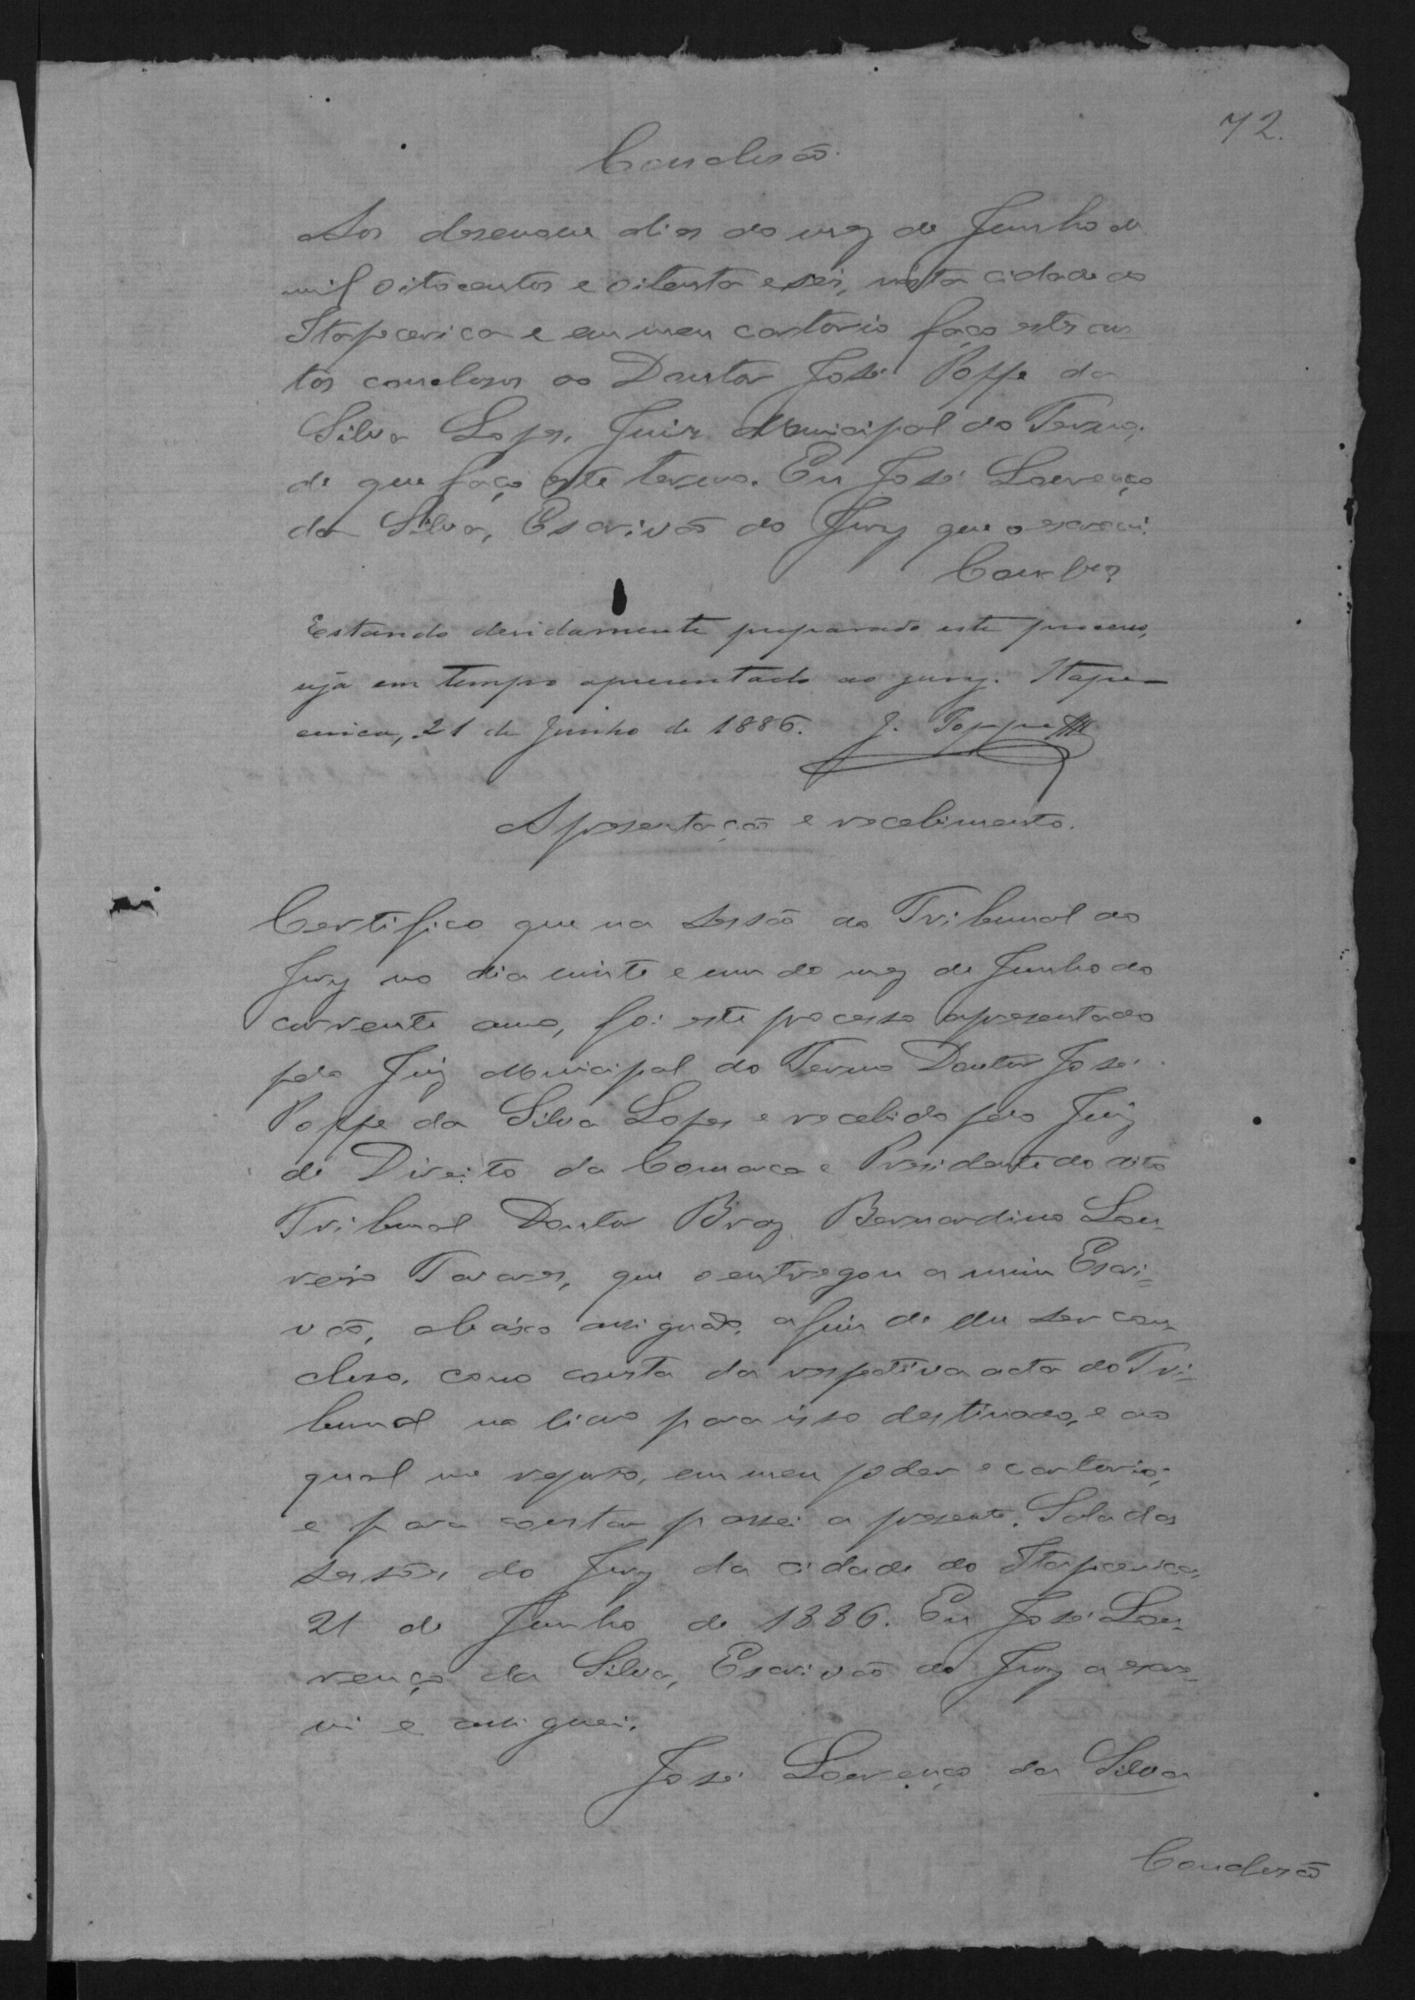 72.
Conclusão.
Aos desenove dias do mez de Junho de
mil oitocentos e oitenta e seis, nesta cidade de
Itapecerica e em meu cartorio faço estes au-
tos conclusos ao Doutor José Poppe da
Silva Lopes, Juiz Municipal do Termo,
de que faço este termo. Eu José Lourenço
da Silva, Escrivão do Jury que o escrevi.
Concl.os
Estando devidamente preparado este processo,
seja em tempo apresentado ao jury. Itape-
cerica, 21 de Junho de 1886. J. Poppe
Apresentação e recebimento.
Certifico que na sessão do Tribunal do
Jury no dia vinte e um do mez de Junho do
corrente anno, foi este processo apresentado
pelo Juiz Municipal do Termo Doutor José
Poppe da Silva Lopes e recebido pelo Juiz
de Direito da Comarca e Presidente do dito
Tribunal Doutor Braz Bernardino Lou-
reiro Tavares, que o entregou a mim Escri-
vão, abaixo assignado, afim de lhe ser con-
cluso, como consta da respectiva acta do Tri-
bunal no livro para isso destinado, e ao
qual me reporto, em meu poder e cartorio;
e para constar passei a presente. Sala das
sessões do Jury da cidade de Itapecerica,
21 de Junho de 1886. Eu José Lou-
renço da Silva, Escrivão do Jury a escre-
vi e assignei.
José Lourenço da Silva
Conclusão